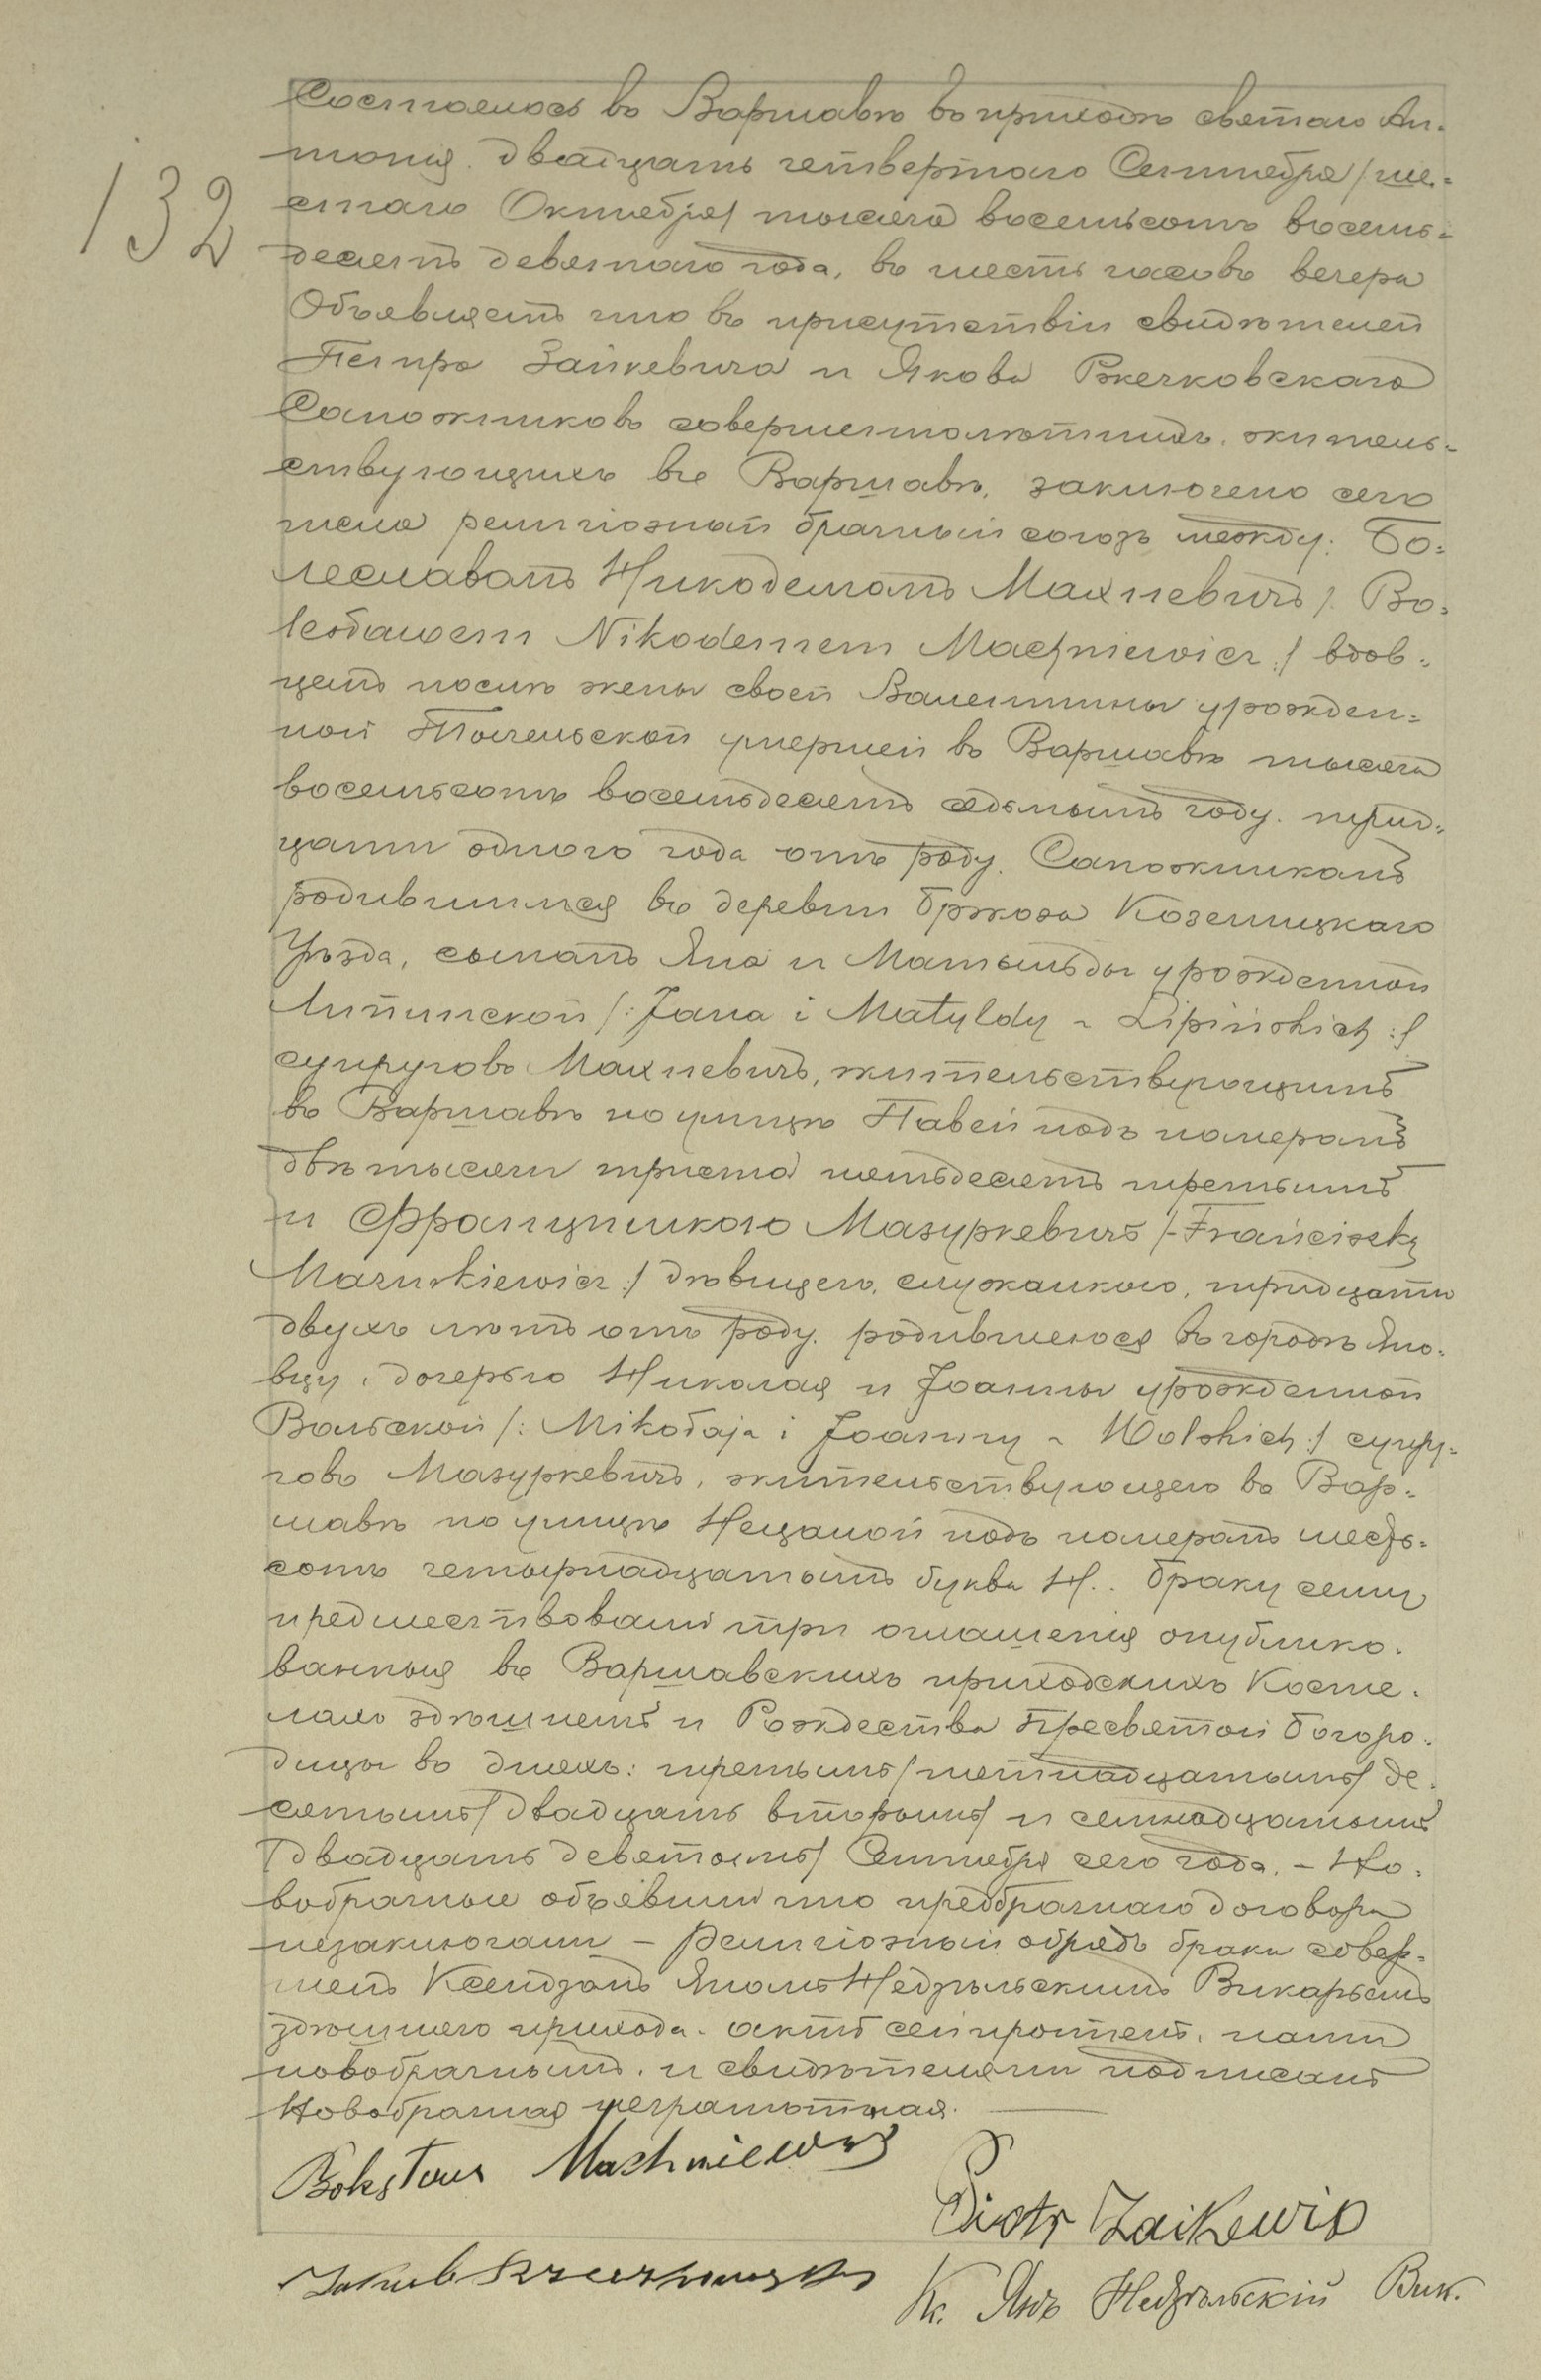 132
Состоялось въ Варшавѣ въ приходѣ святаго Ан-
тонія двадцать четвертаго Сентября / ше-
стаго Октября / тысяча восемьсотъ восемь-
десятъ девятаго года, въ шесть часовъ вечера
Объявляемъ что въ присутствіи свидѣтелей
Петра Зайкевича и Якова Ржечковскаго
Сапожниковъ совершеннолѣтнихъ, житель-
ствующихъ въ Варшавѣ, заключено сего
числа религіозный брачный союзъ между: Бо-
леславомъ Никодемомъ Махневичъ /: Bo-
lesławem Nikodemem Machniewicz :/ вдов-
цемъ послѣ жены своей Валентины урожден-
ной умершей въ Варшавѣ тысяча
восемьсотъ восемьдесятъ седьмымъ году, трид-
цати одного года отъ роду, Сапожникомъ
родившимся въ деревни Бржоза Козеницкаго
Уѣзда, сыномъ Яна и Матыльды урожденной
Липинской /: Jana i Matyldy z Lipińskich :/
супруговъ Махневичъ, жительствующимъ
въ Варшавѣ по улицѣ Павей подъ номеромъ
двѣ тысячи триста пятьдесятъ третьимъ
и Францишкою Мазуркевичъ /: Franciszką
Mazurkiewicz :/ дѣвицею, служанкою, тридцати
двухъ лѣтъ отъ роду, родившеюся въ городѣ Яно-
вцу, дочерью Николая и Joанны урожденной
Вольской /: Mikołaja i Joanny z Wolskich :/ супру-
говъ Мазуркевичъ, жительствующею въ Вар-
шавѣ по улицѣ Нецалой подъ номеромъ шесть-
сотъ четырнадцатымъ буква Н.. Браку сему
предшествовали три оглашенія опублико-
ванныя въ Варшавскихъ приходскихъ Косте-
лахъ здѣшнемъ и Рождества Пресвятой Богоро-
дицы въ дняхъ: третьимъ / пятнадцатымъ / де-
сятымъ / двадцать вторымъ / и семнадцатымъ
/ двадцать девятымъ / Сентября сего года. – Но-
вобрачные объявили что предбрачнаго договора
незаключали – Религіозный обрядъ брака совер-
шенъ Ксендзомъ Яномъ Недзѣльскимъ Викарьемъ
здѣшнего прихода. Актъ сей прочтенъ, нами
новобрачнымъ, и свидѣтелями подписанъ
Новобрачная неграмотная.
Bolesław Machniewicz
Piotr Zaikewic
Jakub Rzeczkowski
К. Янъ Недзѣльскій Вик.